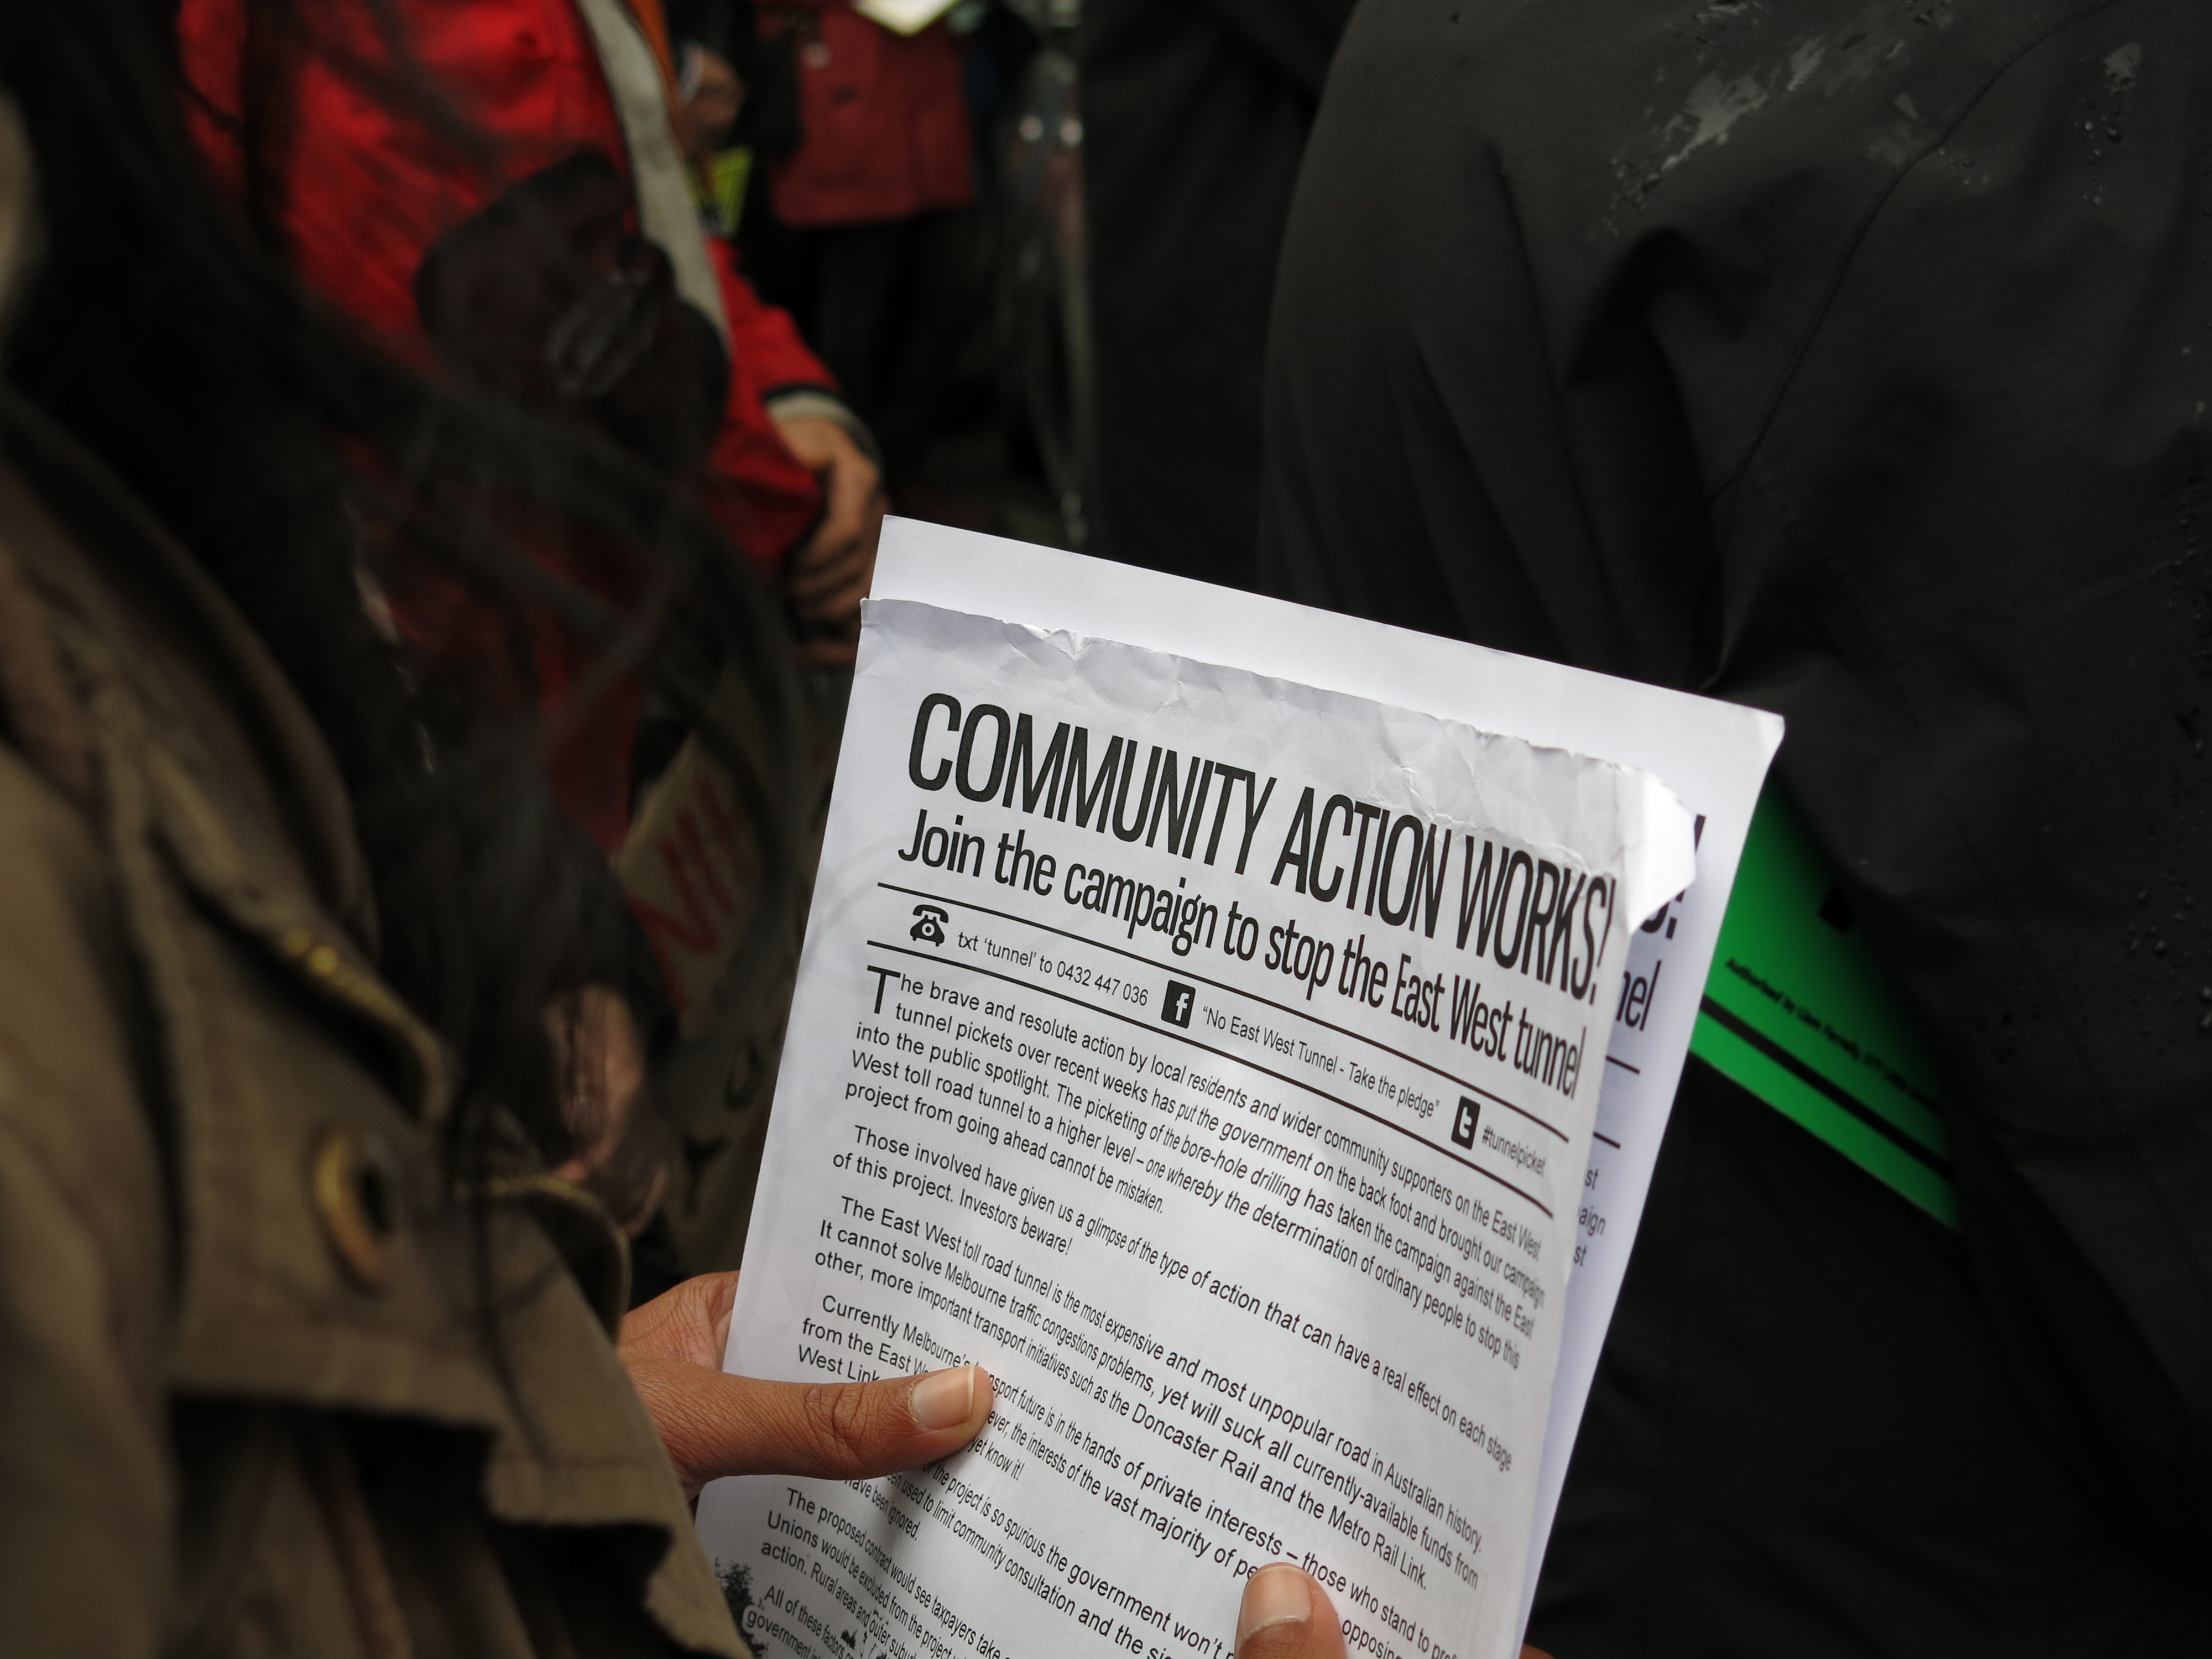 COMMUNITY ACTION WORKS!
Join the campaign to stop the East West tunnel
txt 'tunnel' to 0432 447 036
"No East West Tunnel - Take the pledge"
#tunnelpicket
The brave and resolute action by local residents and wider community supporters on the East West
tunnel pickets over recent weeks has put the government on the back foot and brought our campaign
into the public spotlight. The picketing of the bore-hole drilling has taken the campaign against the East
West toll road tunnel to a higher level – one whereby the determination of ordinary people to stop this
project from going ahead cannot be mistaken.
Those involved have given us a glimpse of the type of action that can have a real effect on each stage
of this project. Investors beware!
The East West toll road tunnel is the most expensive and most unpopular road in Australian history.
It cannot solve Melbourne traffic congestions problems, yet will suck all currently-available funds from
other, more important transport initiatives such as the Doncaster Rail and the Metro Rail Link.
Currently Melbourne's future is in the hands of private interests – those who stand to
from the East the interests of the vast majority of opposing
West Link yet know it!
the project is so spurious the government won't
used to limit community consultation and the
have been ignored.
The proposed contract would see taxpayers take
Unions would be excluded from the project
action. Rural areas and outer
All of these factors
government
!
S!
nel
st
aign
st
Authorised by